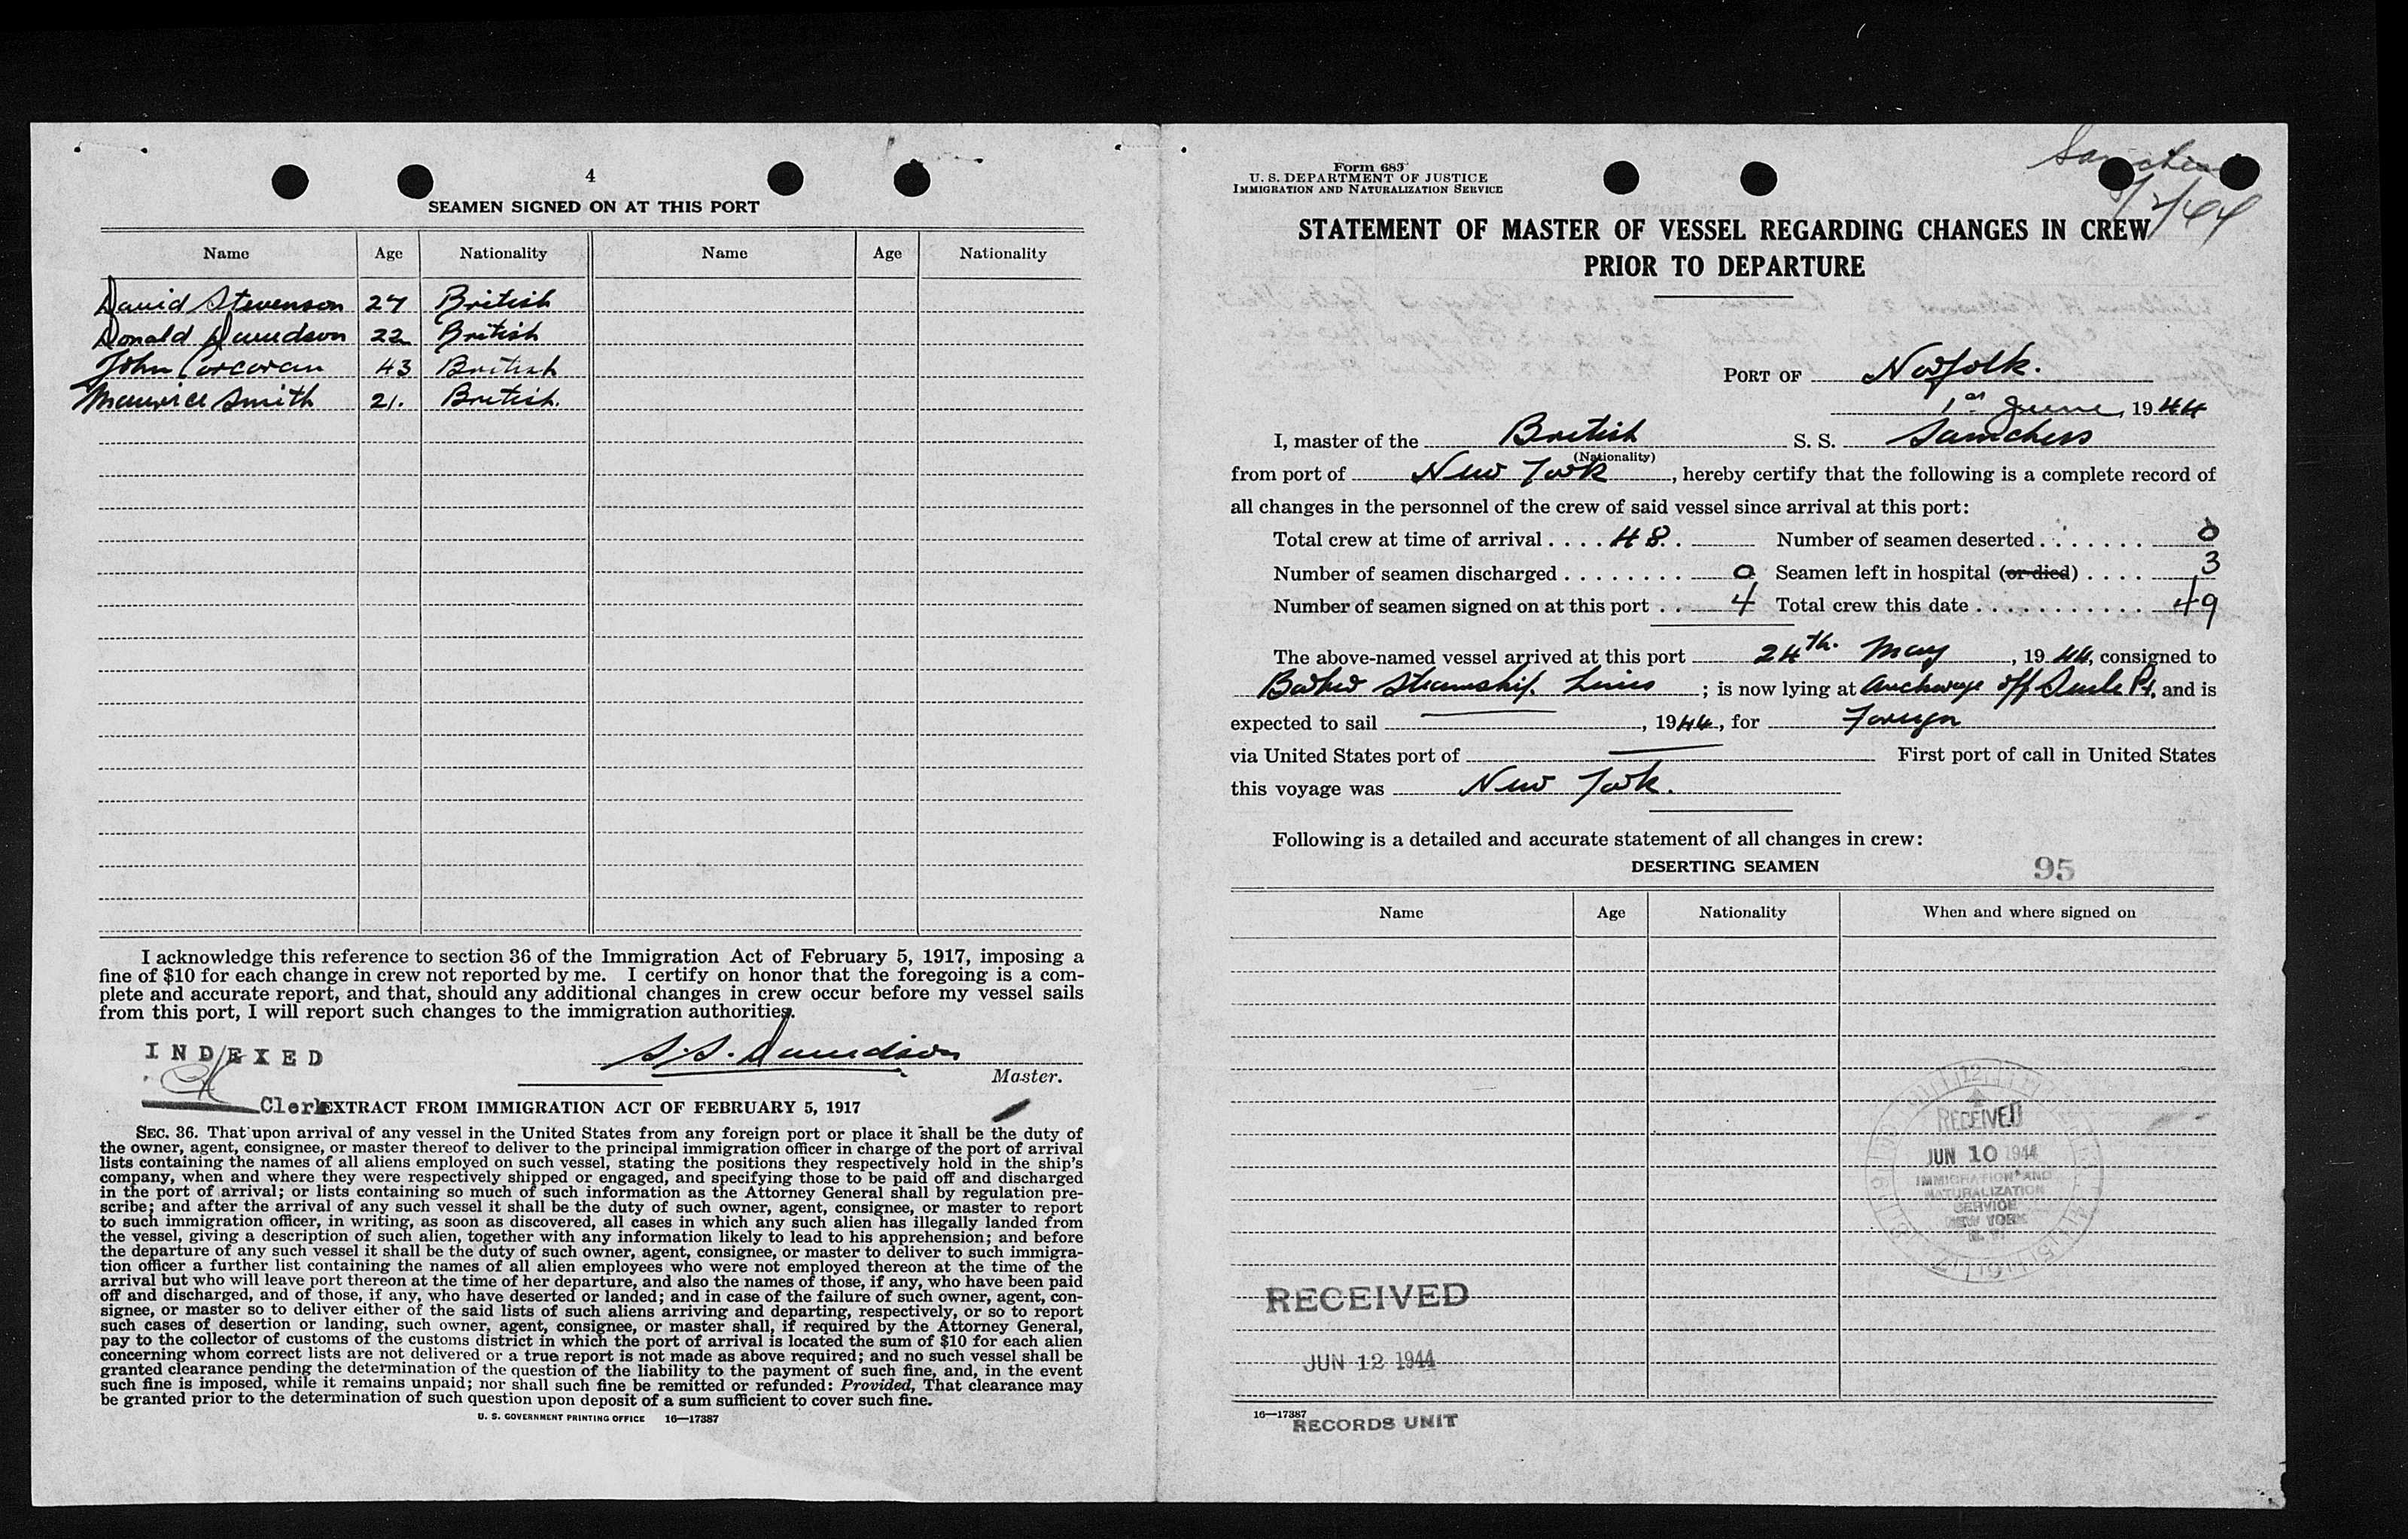 4
SEAMEN SIGNED ON AT THIS PORT
Name Age Nationality Name Age Nationality
David Stevenson 27 British
Donald Davidson 22 British
John Corcoran 43 British
Maurice Smith 21. British.
I acknowledge this reference to section 36 of the Immigration Act of February 5, 1917, imposing a
fine of $10 for each change in crew not reported by me. I certify on honor that the foregoing is a com-
plete and accurate report, and that, should any additional changes in crew occur before my vessel sails
from this port, I will report such changes to the immigration authorities.
INDEXED
S.S. Davidson
Master.
Clerk
EXTRACT FROM IMMIGRATION ACT OF FEBRUARY 5, 1917
SEC. 36. That upon arrival of any vessel in the United States from any foreign port or place it shall be the duty of
the owner, agent, consignee, or master thereof to deliver to the principal immigration officer in charge of the port of arrival
lists containing the names of all aliens employed on such vessel, stating the positions they respectively hold in the ship's
company, when and where they were respectively shipped or engaged, and specifying those to be paid off and discharged
in the port of arrival; or lists containing so much of such information as the Attorney General shall by regulation pre-
scribe; and after the arrival of any such vessel it shall be the duty of such owner, agent, consignee, or master to report
to such immigration officer, in writing, as soon as discovered, all cases in which any such alien has illegally landed from
the vessel, giving a description of such alien, together with any information likely to lead to his apprehension; and before
the departure of any such vessel it shall be the duty of such owner, agent, consignee, or master to deliver to such immigra-
tion officer a further list containing the names of all alien employees who were not employed thereon at the time of the
arrival but who will leave port thereon at the time of her departure, and also the names of those, if any, who have been paid
off and discharged, and of those, if any, who have deserted or landed; and in case of the failure of such owner, agent, con-
signee, or master so to deliver either of the said lists of such aliens arriving and departing, respectively, or so to report
such cases of desertion or landing, such owner, agent, consignee, or master shall, if required by the Attorney General,
pay to the collector of customs of the customs district in which the port of arrival is located the sum of $10 for each alien
concerning whom correct lists are not delivered or a true report is not made as above required; and no such vessel shall be
granted clearance pending the determination of the question of the liability to the payment of such fine, and, in the event
such fine is imposed, while it remains unpaid; nor shall such fine be remitted or refunded: Provided, That clearance may
be granted prior to the determination of such question upon deposit of a sum sufficient to cover such fine.
U. S. GOVERNMENT PRINTING OFFICE 16—17387
Form 689
U. S. DEPARTMENT OF JUSTICE
IMMIGRATION AND NATURALIZATION SERVICE
STATEMENT OF MASTER OF VESSEL REGARDING CHANGES IN CREW
PRIOR TO DEPARTURE
PORT OF Norfolk.
1st June, 1944
I, master of the British S. S. Samchess
(Nationality)
from port of New York, hereby certify that the following is a complete record of
all changes in the personnel of the crew of said vessel since arrival at this port:
Total crew at time of arrival .... 48. Number of seamen deserted ....... 0
Number of seamen discharged ........ 0 Seamen left in hospital (or died) .... 3
Number of seamen signed on at this port .. 4 Total crew this date ........... 49
The above-named vessel arrived at this port 24th. May, 1944, consigned to
Barber Steamship. Lines; is now lying at Anchorage off Pt., and is
expected to sail —, 1944, for Foreign
via United States port of — First port of call in United States
this voyage was New York.
Following is a detailed and accurate statement of all changes in crew:
DESERTING SEAMEN 95
Name Age Nationality When and where signed on
12
RECEIVED
JUN 10 1944
IMMIGRATION AND
NATURALIZATION
SERVICE
NEW YORK
N. Y.
RECEIVED
JUN 12 1944
16—17387
RECORDS UNIT